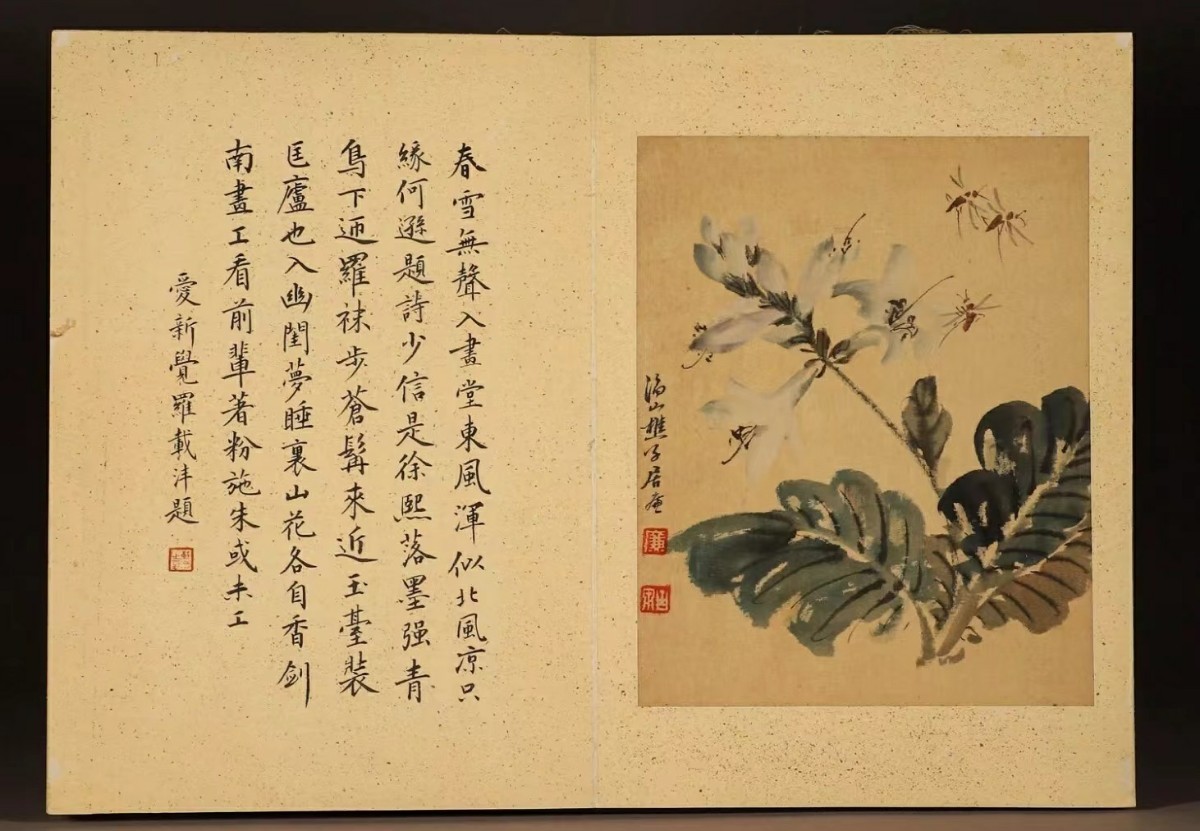 春雪無聲入畫堂東風渾似北風凉只
緣何遜題詩少信是徐熙落墨强青
鳥下迊羅袜步蒼髯來近玉臺裝
匡廬也入幽閨夢睡裏山花各自香劍
南畫工看前輩著粉施朱或未工
愛新覺羅載沣題
隔山樵子居廉